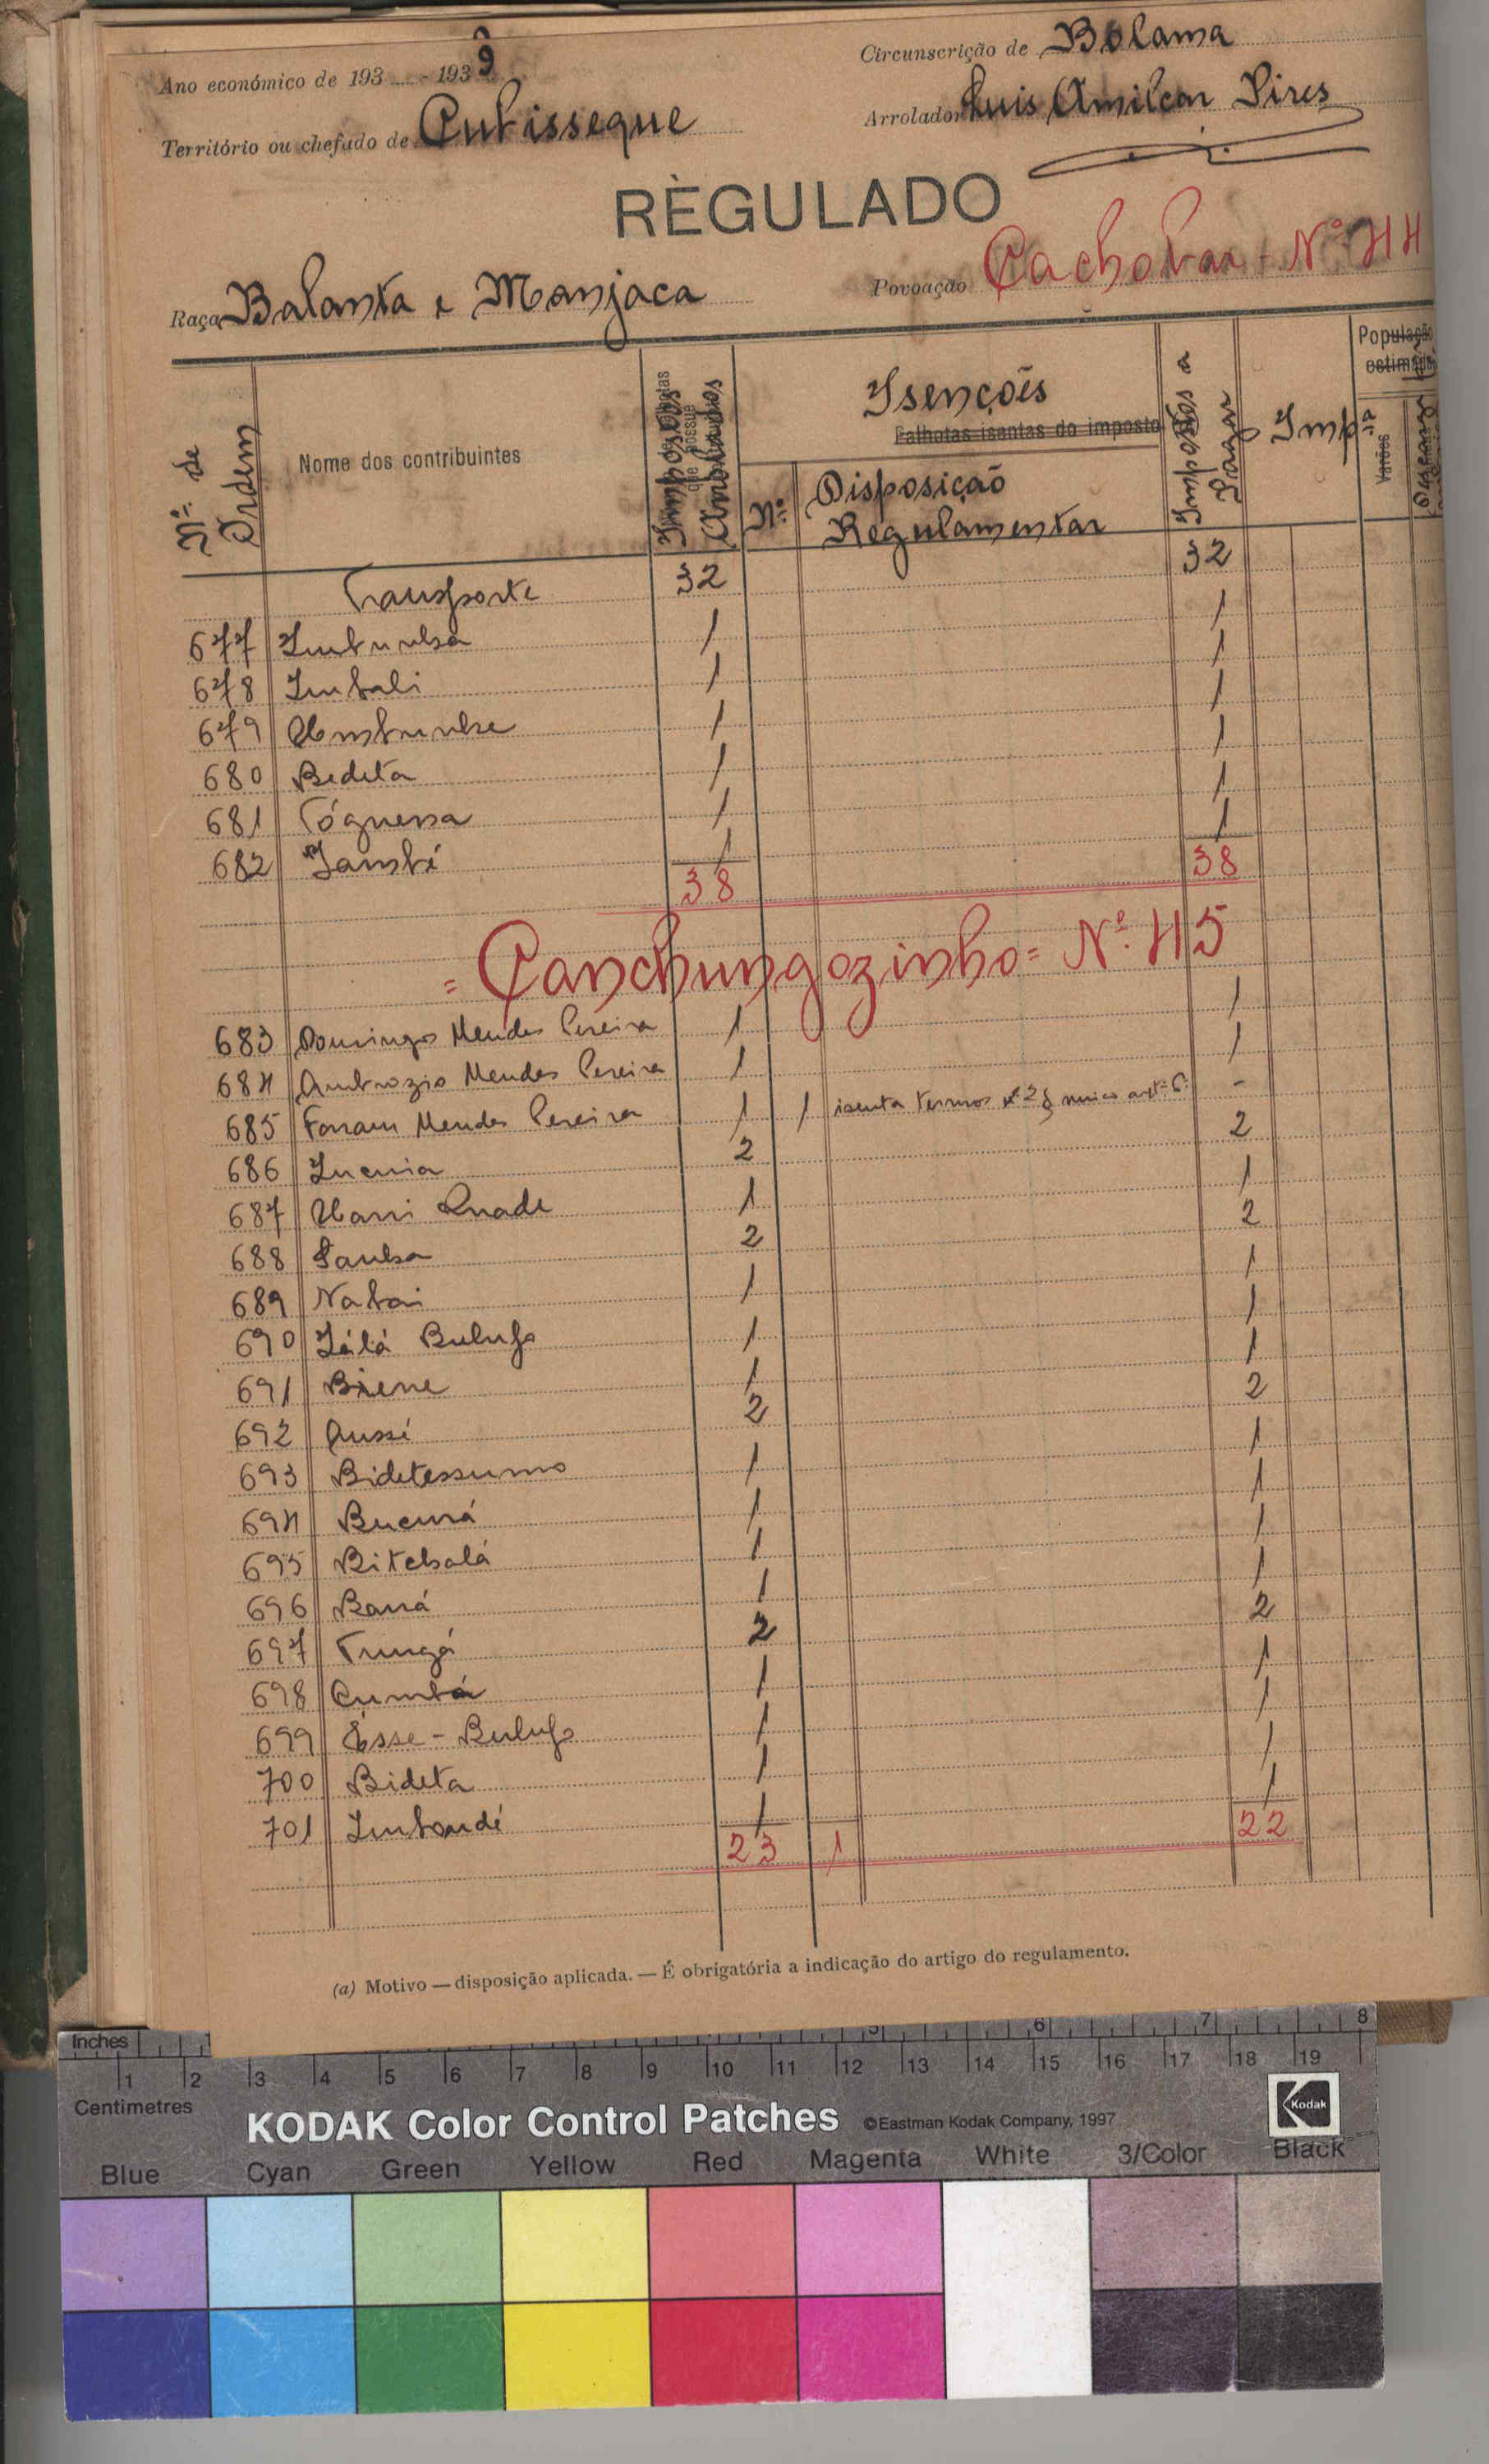 Ano económico de 193 - 1939
Circunscrição de Bolama
Território ou chefado de Cubisseque
Arrolador Luis Amilcar Pires
RÈGULADO
Raça Balanta e Manjaca
Povoação Cachobar - Nº 44
Nº de Ordem
Nome dos contribuintes
Impostos Arrolados
Isenções
Palhotas isentas do imposto
Nº
Disposição Regulamentar
Impostos a Pagar
Imp.
População estimada
Varões
Transporte 32 32
677 1 1
678 Imbali 1 1
679 1 1
680 Bedeta 1 1
681 1 1
682 Jambé 1 1
38 38
= Canchungozinho = Nº 45
683 Domingos Mendes Pereira 1 1
684 Ambrozio Mendes Pereira 1 1
685 Mendes Pereira 1 1 isenta termos nº 2 § unico artº 6º -
686 2 2
687 1 1
688 2 2
689 Nabai 1 1
690 Bulufo 1 1
691 Biene 1 1
692 Aussé 2 2
693 Bidetessumo 1 1
694 1 1
695 1 1
696 1 1
697 Tungá 2 2
698 Cumbá 1 1
699 Esse - Bulufo 1 1
700 Bideta 1 1
701 Imbondé 1 1
23 1 22
(a) Motivo — disposição aplicada. — É obrigatória a indicação do artigo do regulamento.
Inches 1 5 6 7 8
1 2 3 4 5 6 7 8 9 10 11 12 13 14 15 16 17 18 19
Centimetres
KODAK Color Control Patches ©Eastman Kodak Company, 1997 Kodak
Blue Cyan Green Yellow Red Magenta White 3/Color Black